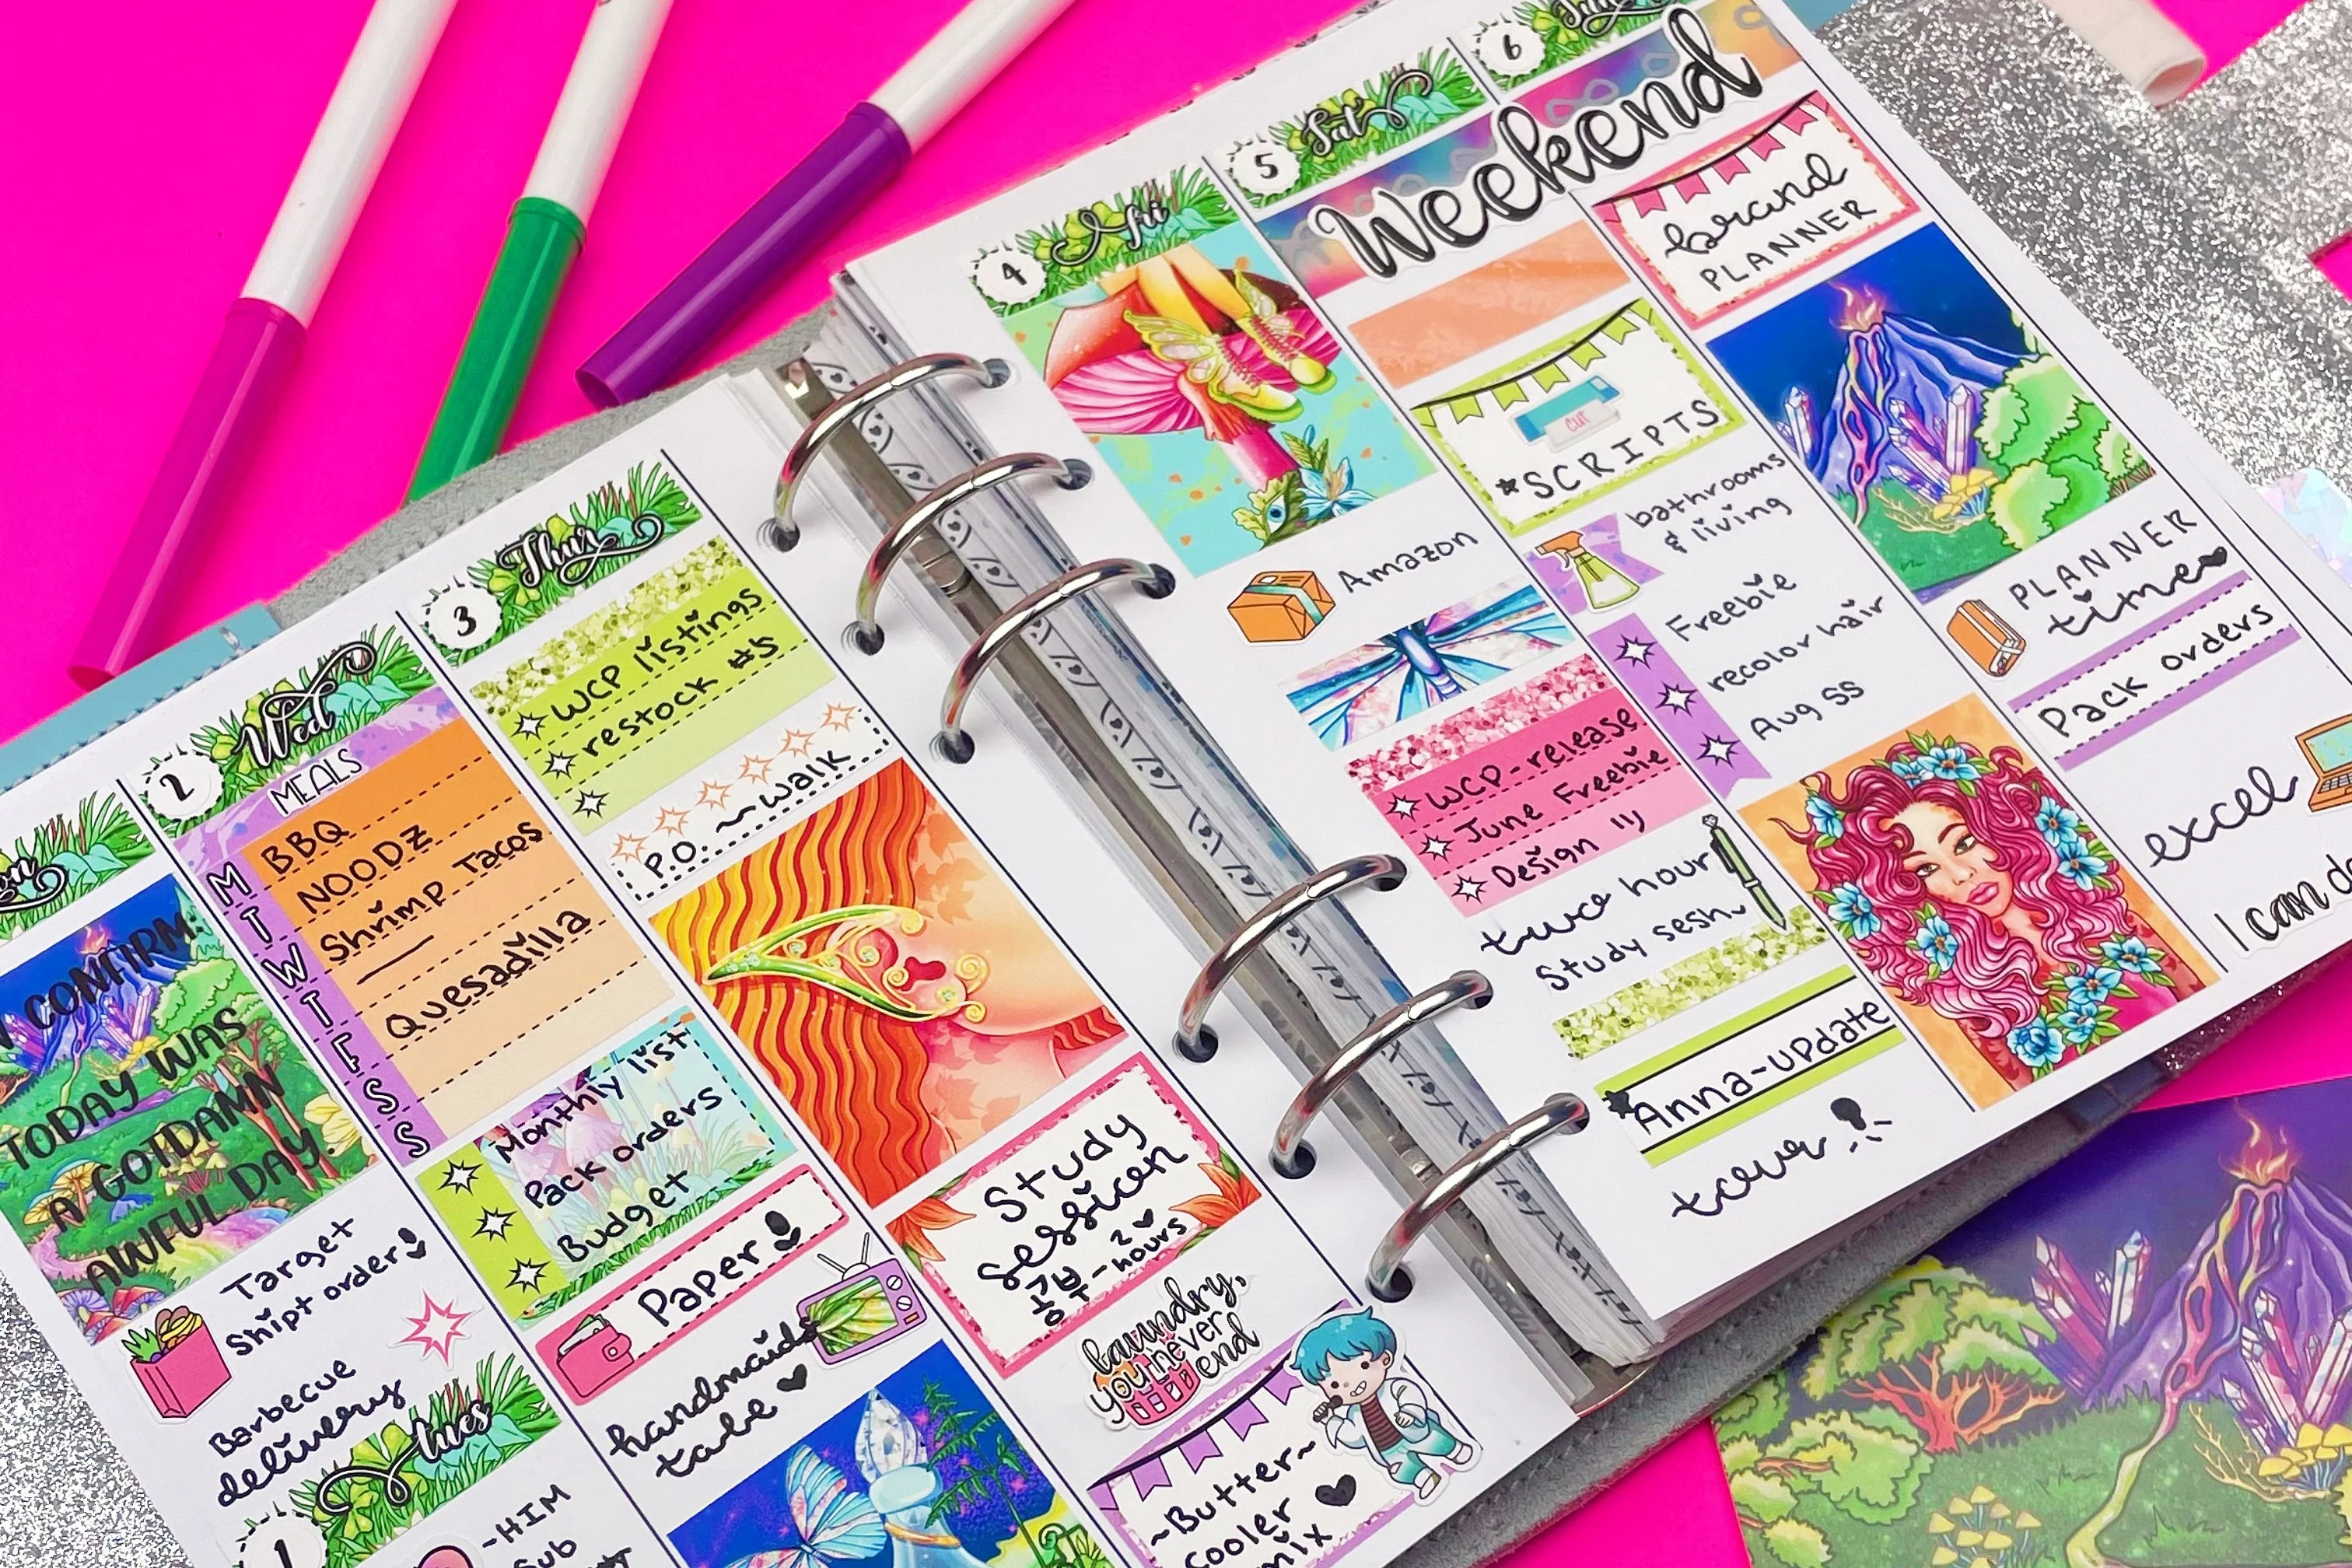 I CONFIRM.
TODAY WAS
A GOTDAMN
AWFUL DAY.
Target
Shipt order
Barbecue
delivery
1
Tues
-HIM
2
Wed
MEALS
M BBQ
T NOODZ
W Shrimp Tacos
T —
F Quesadilla
S
S
Monthly list
Pack orders
Budget
Paper
handmaids
tale ♥
3
Thur
WCP listings
restock #5
P.O. ~~walk
Study
session
공부 - 2 hours
laundry,
you never
end
~Butter~
cooler ♥
mix
4
Fri
Amazon
WCP-release
June Freebie
Design
two hour
Study sesh
*Anna-update
5
Sat
Weekend
CUT
*SCRIPTS
bathrooms
& living
Freebie
recolor hair
Aug SS
6
Sun
brand
PLANNER
PLANNER
time♥
Pack orders
excel
I can